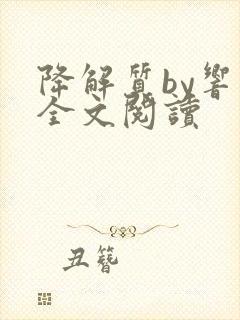 降解质by響
全文閱讀
丑簪